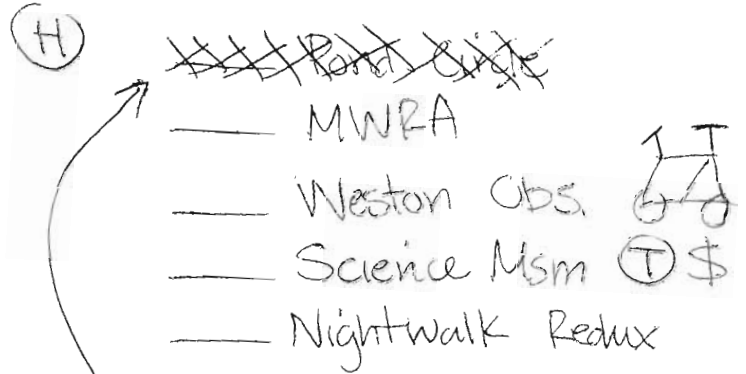 H
Pond Circle
MWRA
Weston Obs.
Science Msm T $
Nightwalk Redux